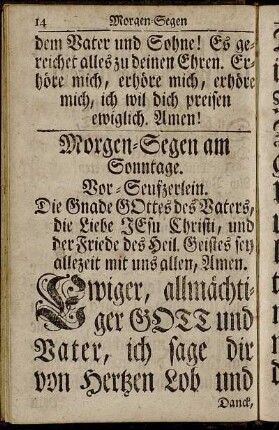 14 Morgen-Segen
dem Vater und Sohne! Es ge-
reichet alles zu deinen Ehren. Er-
höre mich, erhöre mich, erhöre
mich, ich wil dich preisen
ewiglich. Amen!
Morgen-Segen am
Sonntage.
Vor-Seufzerlein.
Die Gnade GOttes des Vaters,
die Liebe JEsu Christi, und
der Friede des Heil. Geistes sey
allezeit mit uns allen, Amen.
Ewiger, allmächti-
ger GOTT und
Vater, ich sage dir
von Hertzen Lob und
Danck,